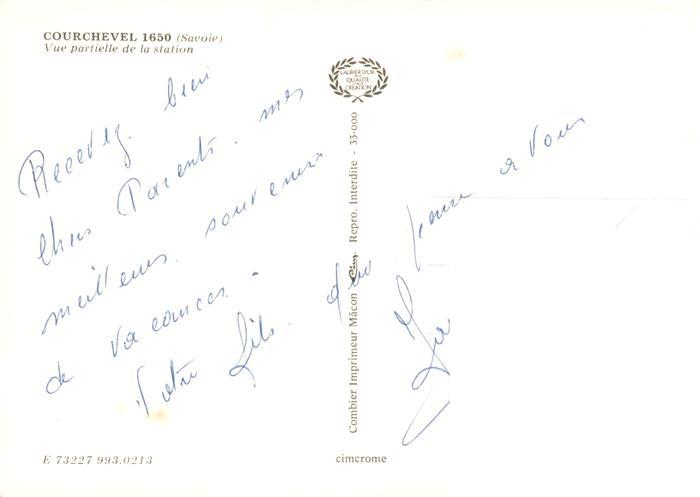 COURCHEVEL 1650 (Savoie)
Vue partielle de la station
LAURIER D'OR
DE LA
QUALITÉ
CREATION
Recevez bien
Chers Parents. mes
meilleurs souvenirs
de vacances.
Votre fils. qui pense a vous
Combier Imprimeur Mâcon Cim Repro. Interdite - 33-000
E 73227 993.0213
cimcrome